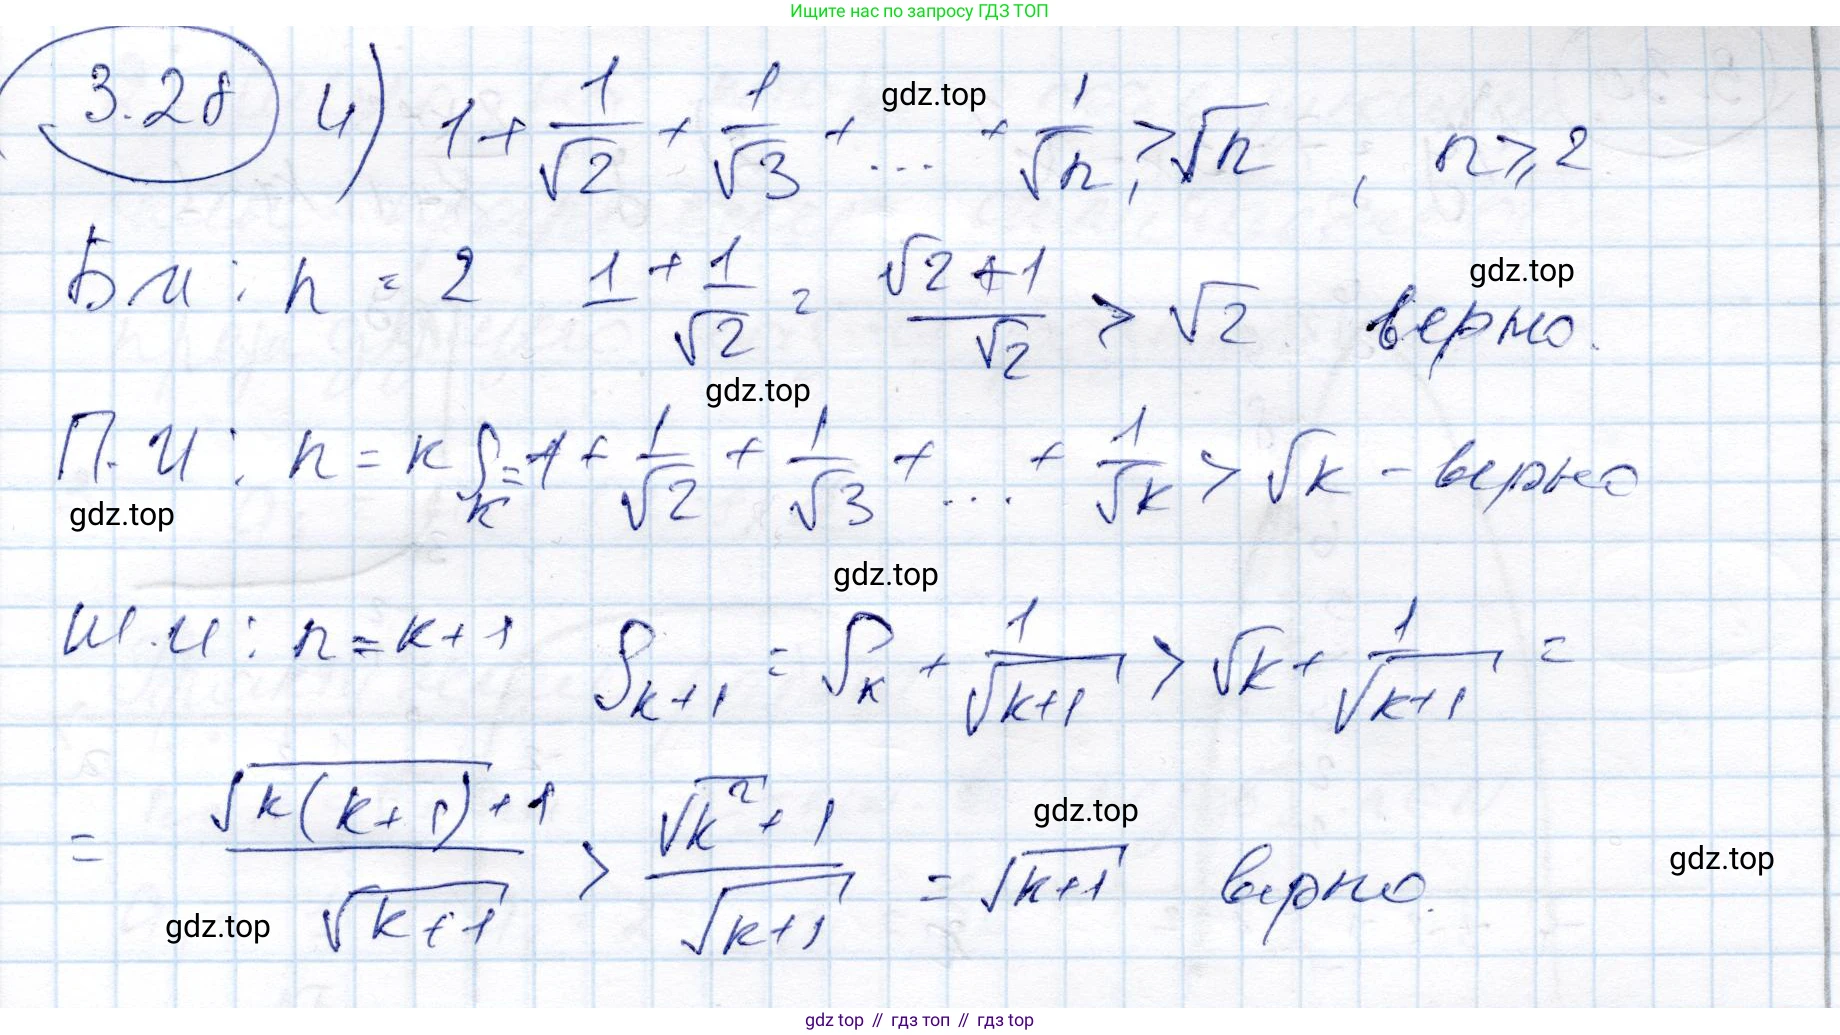 Ищите нас по запросу ГДЗ ТОП
3.28 4) 1 + 1/√2 + 1/√3 + ... + 1/√n > √n, n ⩾ 2
gdz.top
Б И: n = 2 1 + 1/√2 = (√2 + 1)/√2 > √2 верно.
gdz.top
gdz.top
П.И: n = k S_k = 1 + 1/√2 + 1/√3 + ... + 1/√k > √k - верно
gdz.top
gdz.top
Ш.И: n = k+1 S_{k+1} = S_k + 1/√(k+1) > √k + 1/√(k+1) =
= (√(k(k+1)) + 1)/√(k+1) > (√(k²) + 1)/√(k+1) = √(k+1) верно.
gdz.top
gdz.top
gdz.top
gdz top // гдз топ // гдз top